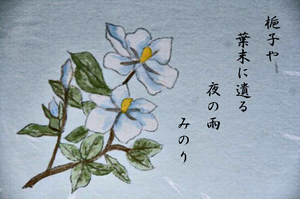 梔子や
葉末に遺る
夜の雨
みのり